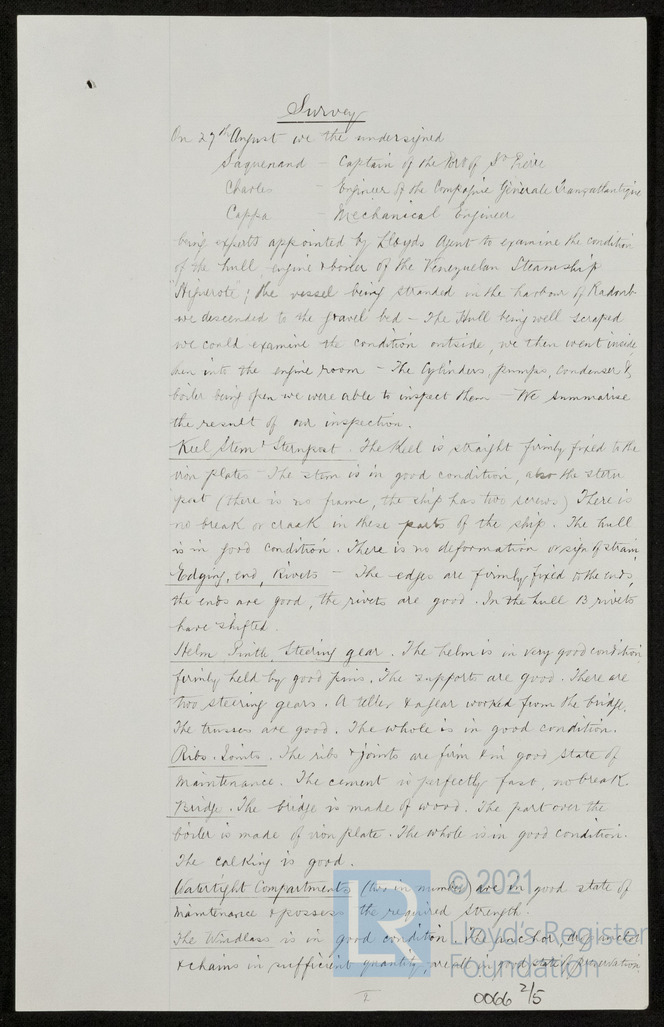 Survey
On 27th August we the undersigned
Saquenand - Captain of the Port of St Pierre
Charles - Engineer of the Compagnie Générale Transatlantique
Cappa - Mechanical Engineer
being experts appointed by Lloyds Agent to examine the condition
of the hull, engine & boiler of the Venezuelan Steamship
; the vessel being stranded in the harbour of
we descended to the gravel bed - The Hull being well scraped
we could examine the condition outside, we then went inside
then into the engine room - The Cylinders, pumps, condenser &
boiler being open we were able to inspect them - We summarise
the result of our inspection.
Keel Stem & Sternpost. The Keel is straight firmly fixed to the
iron plates - The stem is in good condition, also the stern
post (there is no frame, the ship has two screws) There is
no break or crack in these parts of the ship. The hull
is in good condition. There is no deformation or sign of strain.
Edging, end, Rivets - The edges are firmly fixed to the ends,
the ends are good, the rivets are good. In the hull 13 rivets
have shifted.
Helm, Steering gear. The helm is in very good condition
firmly held by good pins. The supports are good. There are
two steering gears. A tiller & a gear worked from the bridge.
The trusses are good. The whole is in good condition.
Ribs. Joints. The ribs & joints are firm & in good state of
maintenance. The cement is perfectly fast, no break.
Bridge. The bridge is made of wood. The part over the
boiler is made of iron plate. The whole is in good condition.
The calking is good.
Watertight Compartments (two in number) are in good state of
maintenance & possess the required strength.
The Windlass is in good condition. The anchor,
& chains in sufficient quantity, are all in good state of preservation.
I
0066 2/5
© 2021
LR
Lloyd's Register
Foundation